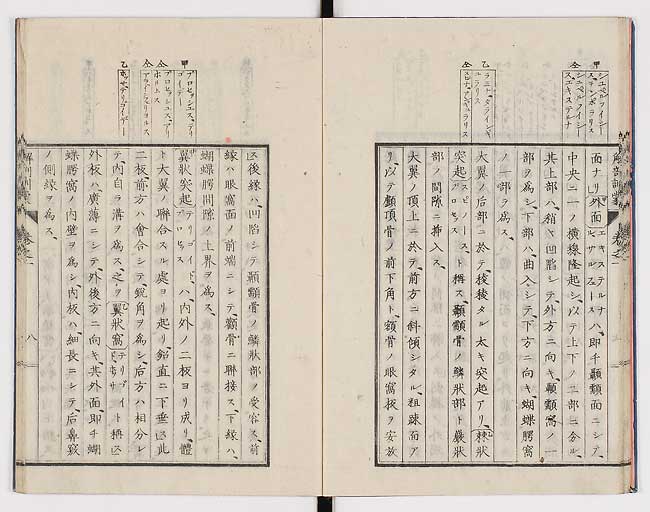 面ナリ外面エキステルナヒサルスースハ、即チ顳顬面ニシテ、
中央ニ一ノ横線隆起シ、以テ上下ノ二部ニ分ル、
其上部ハ、稍々凹陷シテ、外方ニ向キ、顳顬窩ノ一
部ヲ爲シ、下部ハ、曲入シテ、下方ニ向キ、蝴蝶腭窩
ノ一部ヲ爲ス、
大翼ノ后部ニ於テ、稜稜タル太キ突起アリ、棘狀
突起スピノースプロセスト稱ス、顳顬骨ノ鱗狀部ト巖狀
部ノ間隙ニ挿入ス、
大翼ノ頂上ニ於テ、前方ニ斜傾シタル、粗疎面ア
リ、以テ顱頂骨ノ前下角ト、額骨ノ眼窩板ヲ安放
甲
シュペルフィシース、テンポラリス
仝
シュペルフィシース、エキステルナ
乙
仝
スピナ、アンギュラリス
解剖訓蒙
卷之一
八
區後緣ハ、凹陷シテ顳顬骨ノ鱗狀部ノ受容ス、前
緣ハ眼窩面ノ前端ニシテ、顴骨ニ聯接ス、下緣ハ、
蝴蝶腭間隙ノ上界ヲ爲ス、
翼狀突起テリゴイドプロセスハ、内外ノ二板ヨリ成リ、體
ト大翼ノ聯合スル處ヨリ起リ、鉛直ニ下垂區此
二板、前方ハ會合シテ、鋭角ヲ爲シ、后方ハ相分レ
テ、内自ラ溝ヲ爲ス、之ヲ翼狀窩テリゴイドホッサト稱區
外板ハ、廣薄ニシテ、外後方ニ向キ、其外面、即チ蝴
蝶腭窩ノ内壁ヲ爲シ、内板ハ、細長ニシテ、后鼻竅
ノ側緣ヲ爲ス、
甲
プロセッシュス、テリゴイデー
仝
仝
乙
ホッサ、テリゴイデー